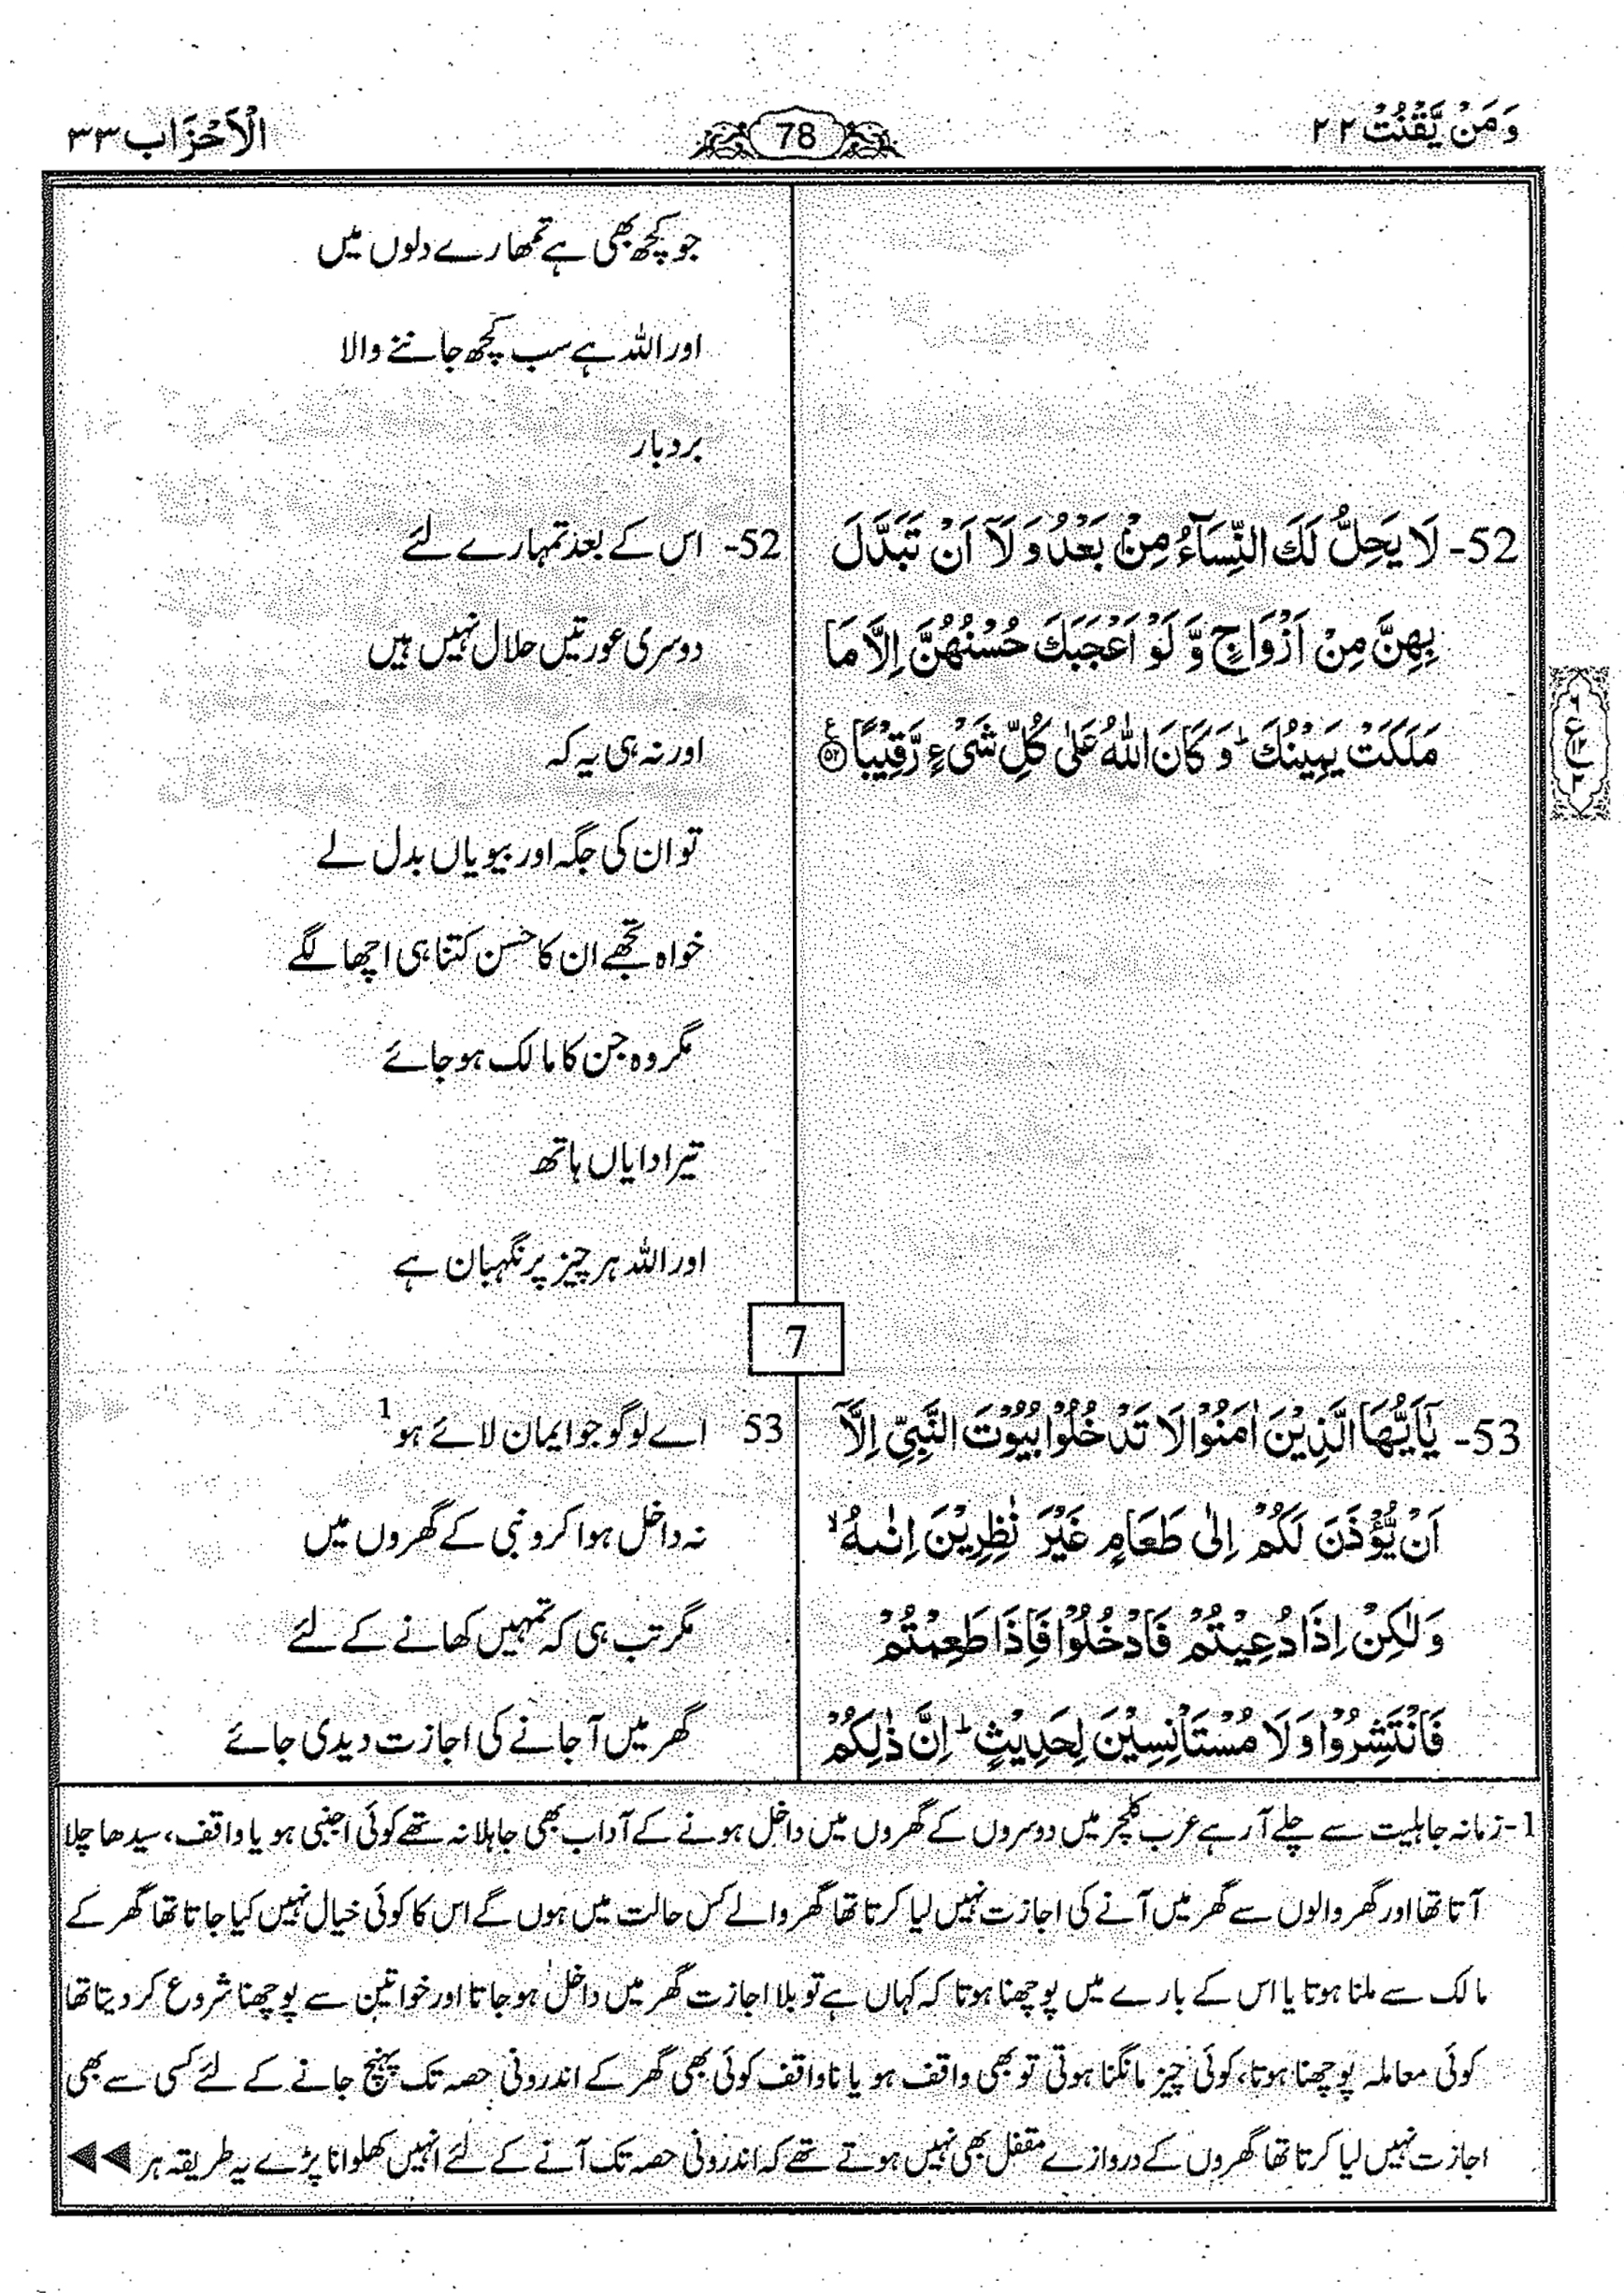 وَمَنْ يَّقْنُتْ ٢٢
78
الْاَحْزَاب ٣٣
جو کچھ بھی ہے تمھارے دلوں میں
اور اللہ ہے سب کچھ جاننے والا
بردبار
52- لَا يَحِلُّ لَكَ النِّسَآءُ مِنْۢ بَعْدُ وَ لَاۤ اَنْ تَبَدَّلَ
بِهِنَّ مِنْ اَزْوَاجٍ وَّ لَوْ اَعْجَبَكَ حُسْنُهُنَّ اِلَّا مَا
مَلَكَتْ يَمِيْنُكَ ؕ وَ كَانَ اللّٰهُ عَلٰى كُلِّ شَيْءٍ رَّقِيْبًا ۝۵۲
52- اس کے بعد تمہارے لئے
دوسری عورتیں حلال نہیں ہیں
اور نہ ہی یہ کہ
تو ان کی جگہ اور بیویاں بدل لے
خواہ تجھے ان کا حسن کتنا ہی اچھا لگے
مگر وہ جن کا مالک ہو جائے
تیرا دایاں ہاتھ
اور اللہ ہر چیز پر نگہبان ہے
7
53- يٰۤاَيُّهَا الَّذِيْنَ اٰمَنُوْا لَا تَدْخُلُوْا بُيُوْتَ النَّبِيِّ اِلَّاۤ
اَنْ يُّؤْذَنَ لَكُمْ اِلٰى طَعَامٍ غَيْرَ نٰظِرِيْنَ اِنٰىهُ ۙ
وَ لٰكِنْ اِذَا دُعِيْتُمْ فَادْخُلُوْا فَاِذَا طَعِمْتُمْ
فَانْتَشِرُوْا وَ لَا مُسْتَاْنِسِيْنَ لِحَدِيْثٍ ؕ اِنَّ ذٰلِكُمْ
53 اے لوگو جو ایمان لائے ہو 1
نہ داخل ہوا کرو نبی کے گھروں میں
مگر تب ہی کہ تمہیں کھانے کے لئے
گھر میں آجانے کی اجازت دیدی جائے
1- زمانہ جاہلیت سے چلے آرہے عرب کلچر میں دوسروں کے گھروں میں داخل ہونے کے آداب بھی جاہلانہ تھے کوئی اجنبی ہو یا واقف، سیدھا چلا
آتا تھا اور گھر والوں سے گھر میں آنے کی اجازت نہیں لیا کرتا تھا گھر والے کس حالت میں ہوں گے اس کا کوئی خیال نہیں کیا جاتا تھا گھر کے
مالک سے ملنا ہوتا یا اس کے بارے میں پوچھنا ہوتا کہ کہاں ہے تو بلا اجازت گھر میں داخل ہو جاتا اور خواتین سے پوچھنا شروع کر دیتا تھا
کوئی معاملہ پوچھنا ہوتا، کوئی چیز مانگنا ہوتی تو بھی واقف ہو یا ناواقف کوئی بھی گھر کے اندرونی حصہ تک پہنچ جانے کے لئے کسی سے بھی
اجازت نہیں لیا کرتا تھا گھروں کے دروازے مقفل بھی نہیں ہوتے تھے کہ اندرونی حصہ تک آنے کے لئے انہیں کھلوانا پڑے یہ طریقہ ہر ◀◀